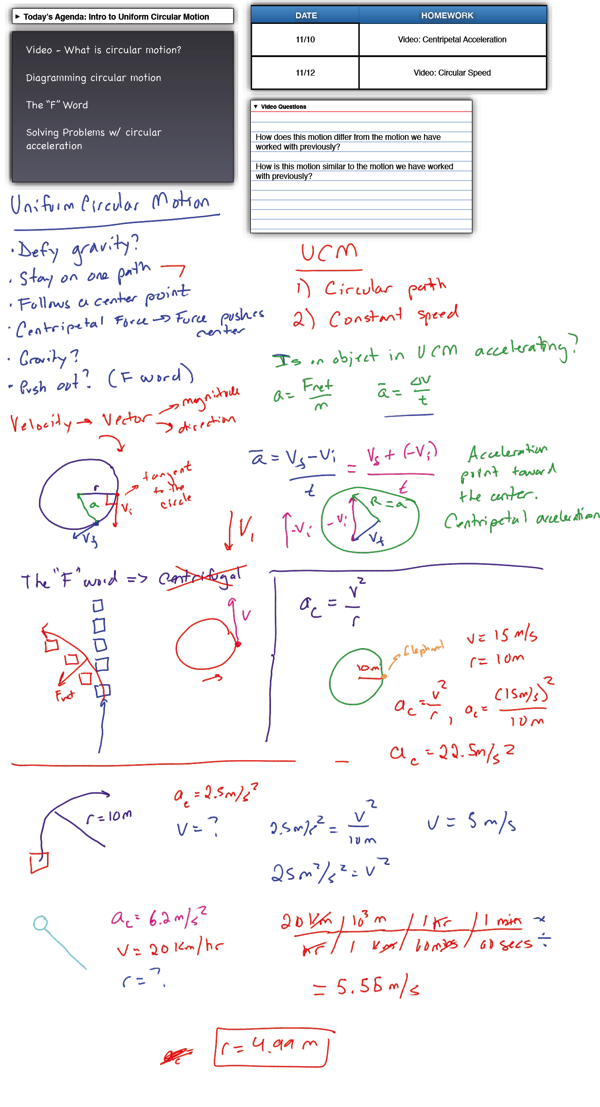 ► Today's Agenda: Intro to Uniform Circular Motion
Video - What is circular motion?
Diagramming circular motion
The "F" Word
Solving Problems w/ circular
acceleration
DATE HOMEWORK
11/10 Video: Centripetal Acceleration
11/12 Video: Circular Speed
▼ Video Questions
How does this motion differ from the motion we have
worked with previously?
How is this motion similar to the motion we have worked
with previously?
Uniform Circular Motion
· Defy gravity?
· Stay on one path
· Follows a center point
· Centripetal Force → Force pushes
center
· Gravity?
· Push out? (F word)
UCM
1) Circular path
2) Constant speed
Is an object in UCM accelerating?
a = Fnet/m a̅ = ΔV/t
Velocity → Vector → magnitude
→ direction
r
a
Vi
Vf
tangent
to the
circle
a̅ = Vf - Vi / t = Vf + (-Vi) / t
Vi
-Vi
-Vi
R = a
Vf
Acceleration
point toward
the center.
Centripetal acceleration
The "F" word => centrifugal
Fnet
V
ac = v²/r
10m
Elephant
v = 15 m/s
r = 10m
ac = v²/r, ac = (15m/s)²/10m
ac = 22.5m/s²
r = 10m
ac = 2.5m/s²
V = ?
2.5m/s² = V²/10m
25m²/s² = V²
V = 5 m/s
ac = 6.2m/s²
V = 20 km/hr
r = ?
20 km | 10³ m | 1 hr | 1 min ×
hr | 1 km | 60 mins | 60 secs ÷
= 5.56 m/s
r = 4.99 m